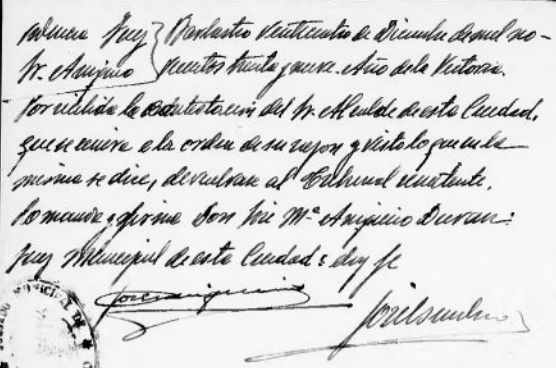 Providencia Juez } Barbastro veinticuatro de Diciembre de mil no-
Sr. Ampirio } vecientos treinta y nueve. Año de la Victoria.
Por recibida la contestación del Sr. Alcalde de esta Ciudad,
que se una a la orden de su razon y visto lo que en la
misma se dice, devuelvase al Tribunal remitente.
Lo manda y firma Don José Mª Durán:
Juez Municipal de esta Ciudad: doy fe